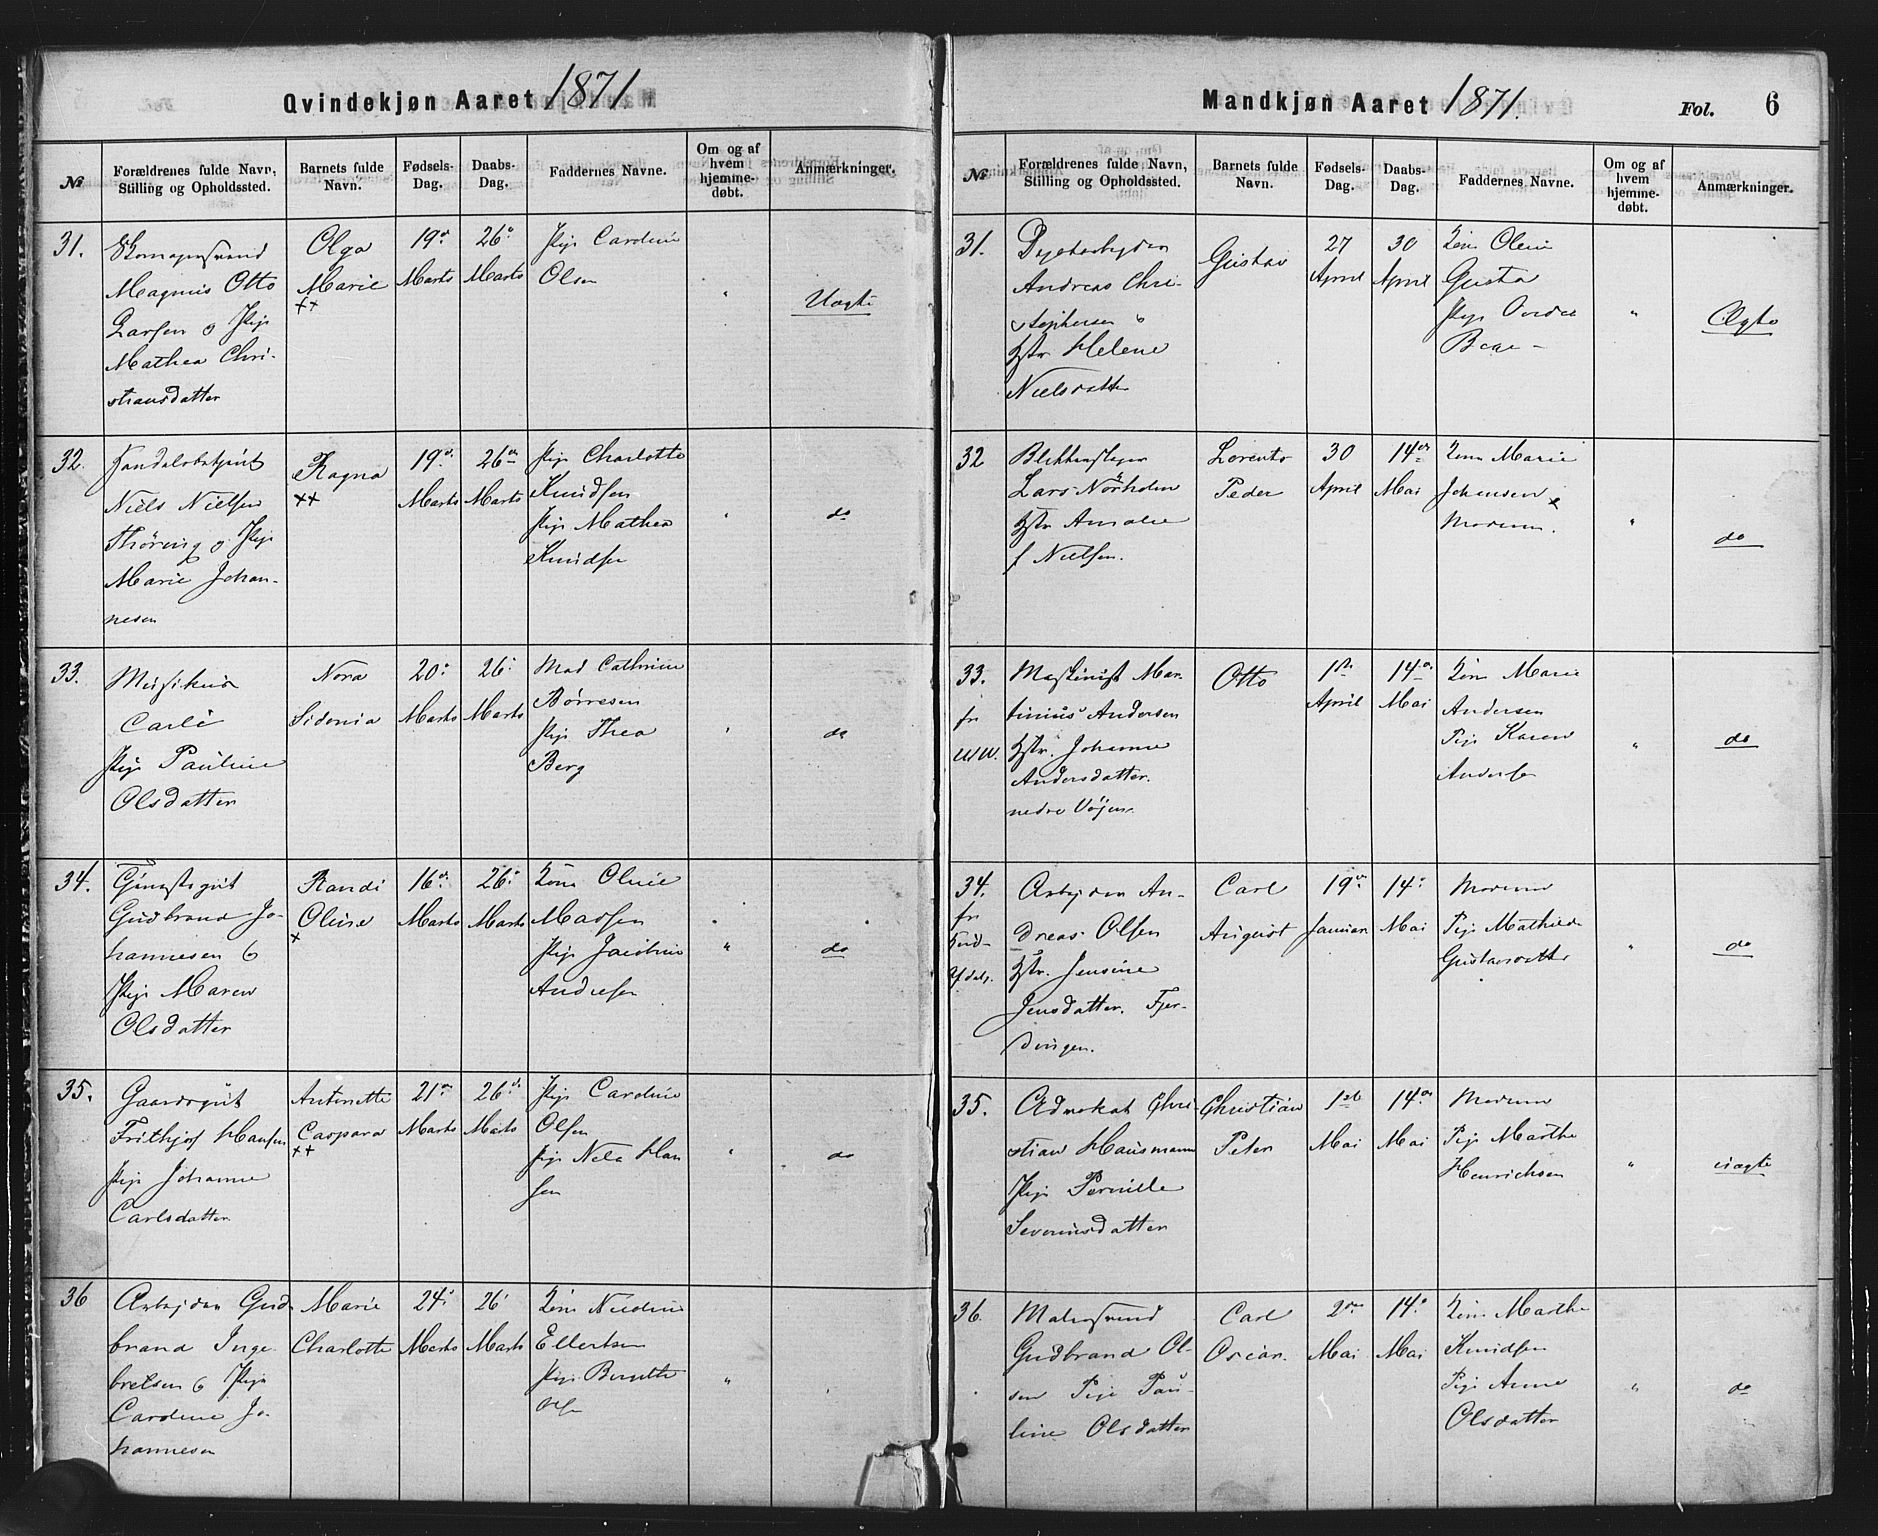 Qvindekjøn Aaret 1871
№
Forældrenes fulde Navn, Stilling og Opholdssted.
Barnets fulde Navn.
Fødsels-Dag.
Daabs-Dag.
Faddernes Navne.
Om og af hvem hjemme-døbt.
Anmærkninger.
31.
Magnus Otto
Larsen o Pige
Mathea Chri-
stiansdatter
Olga
Marie
××
19de
Marts
26de
Marts
Pige Caroline
Olsen
"
Uægte
32.
Niels Nielsen
Thøring o Pige
Marie Johan-
nesen
Ragna
××
19de
Marts
26de
Marts
Pige Charlotte
Knudsen
Pige Mathea
Knudsen
"
do
33.
Musikus
Carli
Pige Pauline
Olsdatter
Nora
Sidonia
20de
Marts
26de
Marts
Mad Cathrine
Børresen
Pige Thea
Berg
"
do
34.
Gudbrand Jo-
hannesen o
Pige Maren
Olsdatter
Randi
Oline
×
16de
Marts
26de
Marts
Kone Oline
Madsen
Pige Jacobine
Andresen
"
do
35.
Gaardsgut
Frithjof Hansen
Pige Johanne
Carlsdatter
Antonette
Caspara
××
21de
Marts
26de
Marts
Pige Caroline
Olsen
Pige Nela Han
sen
"
do
36
Arbejder Gud-
brand Inge-
bretsen o Pige
Caroline Jo-
hannesen
Marie
Charlotte
24de
Marts
26
Marts
Kone
Ellertsen
Pige Bernette
Olsen
"
Mandkjøn Aaret 1871.
Fol. 6
№
Forældrenes fulde Navn, Stilling og Opholdssted.
Barnets fulde Navn.
Fødsels-Dag.
Daabs-Dag.
Faddernes Navne.
Om og af hvem hjemme-døbt.
Anmærkninger.
31.
Andreas Chri-
stophersen o
Hstr Helene
Nielsdatter
Gustav
27
April
30
April
Kone Oline
Gusta
Pige
"
Ægte
32
Blikkenslager
Lars Nørholm
Hstr Amalie
f Nielsen.
Lorents
Peder
30
April
14de
Mai
Kone Marie
Johansen &
Moderen.
"
do
33.
fri
Maskinist Mar-
tinius Andersen
Hstr. Johanne
Andersdatter.
nedre Vøjen.
Otto
1ste
April
14de
Mai
Kone Marie
Andersen
Pige Karen
Andersen
"
do
34.
fri
Arbejder An-
dreas Olsen
Hstr. Jensine
Jensdatter. Fjer-
dingen.
Carl
August
19de
Januar
14de
Mai
Moderen
Pige Mathilde
Gustavsdatter
"
do
35.
Advokat Chri-
stian Hausmann
Pige Pernille
Severinsdatter
Christian
Peter
1ste
Mai
14de
Mai
Moderen
Pige Marthe
Henrichsen
"
uægte
36.
Malersvend
Gudbrand Ol-
sen Pige Pau-
line Olsdatter
Carl
Oscar.
2den
Mai
14de
Mai
Kone Marthe
Knudsen
Pige Anne
Olsdatter
"
do